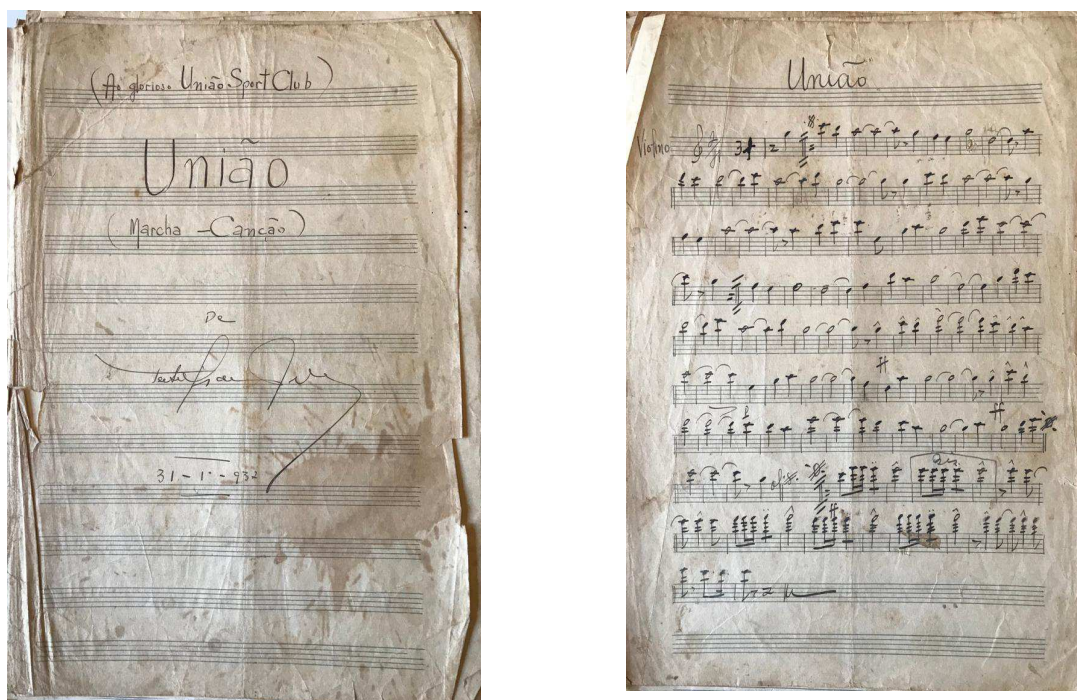 (Ao glorioso União Sport Club)
União
(Marcha - Canção)
De
31-1-932
União
Violino
Bis